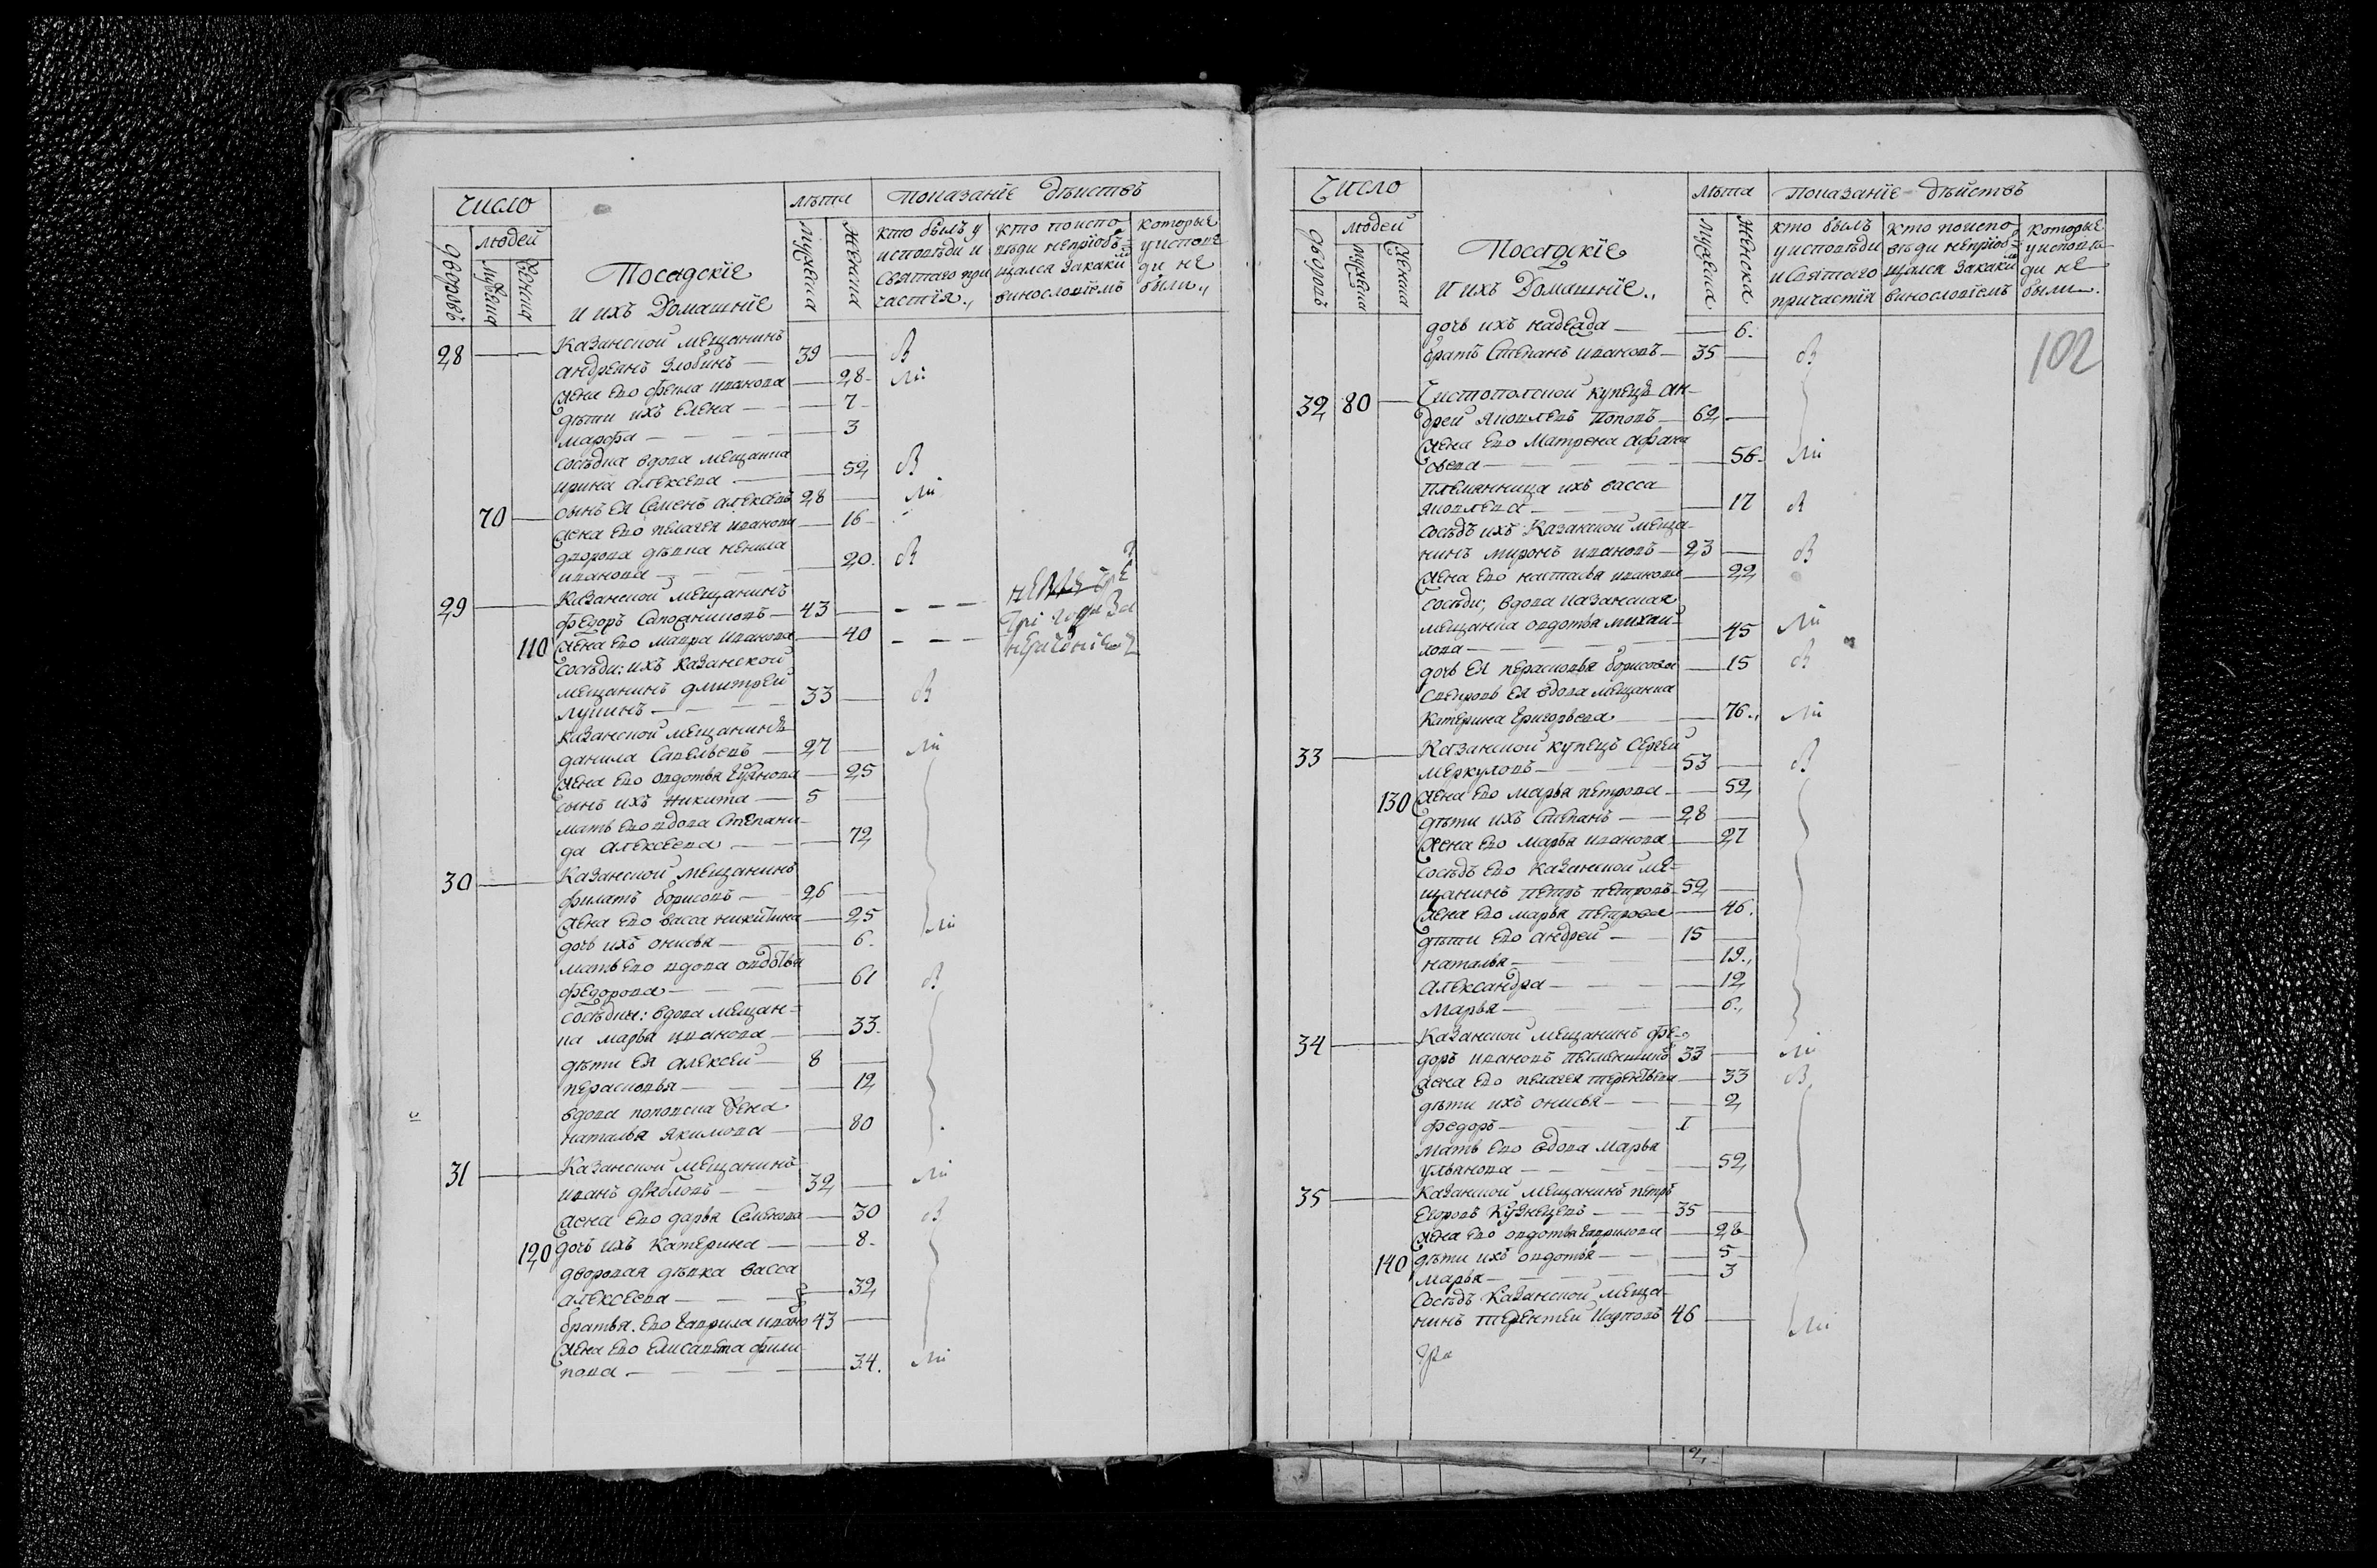 Число
людей
дворовъ
мужеска
женска
Посадские
и ихъ Домашние
лѣта
мужеска
женска
показание дѣиствъ
кто былъ у
исповѣди и
святаго при
частия.,
кто поиспо
вѣди неприоб
щался закаки
винословиемъ
которые
у испове
ди не
были.,
28 Казанской мещанинъ
андреянъ Злобинъ — 39
жена ево Фекла иванова — 28
дѣти ихъ Елена — 7
марфа — 3
сосѣдка вдова мещанка
ирина алексеева — 52
70 сынъ ея Семенъ алексеевъ 28
жена ево пелагея иванова — 16
дворова дѣвка ненила
иванова — 20
29 Казанской мещанинъ
Федоръ Сапожниковъ — 43
110 жена ево мавра иванова — 40
три года за
сосѣди: ихъ казанской
мещанинъ дмитрей
лукинъ — 33
казанской мещанинъ
данила Савельевъ — 27
жена ево овдотья — 25
сынъ ихъ Никита — 5
мать ево вдова Степани-
да алексеева — 72
30 Казанской мещанинъ
филатъ борисовъ — 26
жена ево васса никитина — 25
дочь ихъ онисья — 6.
мать ево вдова овдотья
федорова — 61
сосѣдки: вдова мещан-
ка марья иванова — 33
дѣти ея алексеи — 8
парасковья — 12
вдова поповска жена
наталья якимова — 80
31 Казанской мещанинъ
иванъ дябловъ — 32
жена ево дарья Семенова — 30
120 дочь ихъ катерина — 8
дворовая дѣвка васса
алексеева — 32
братья. ево гаврила ивано 43
жена ево елисавета фили-
пова — 34.
Число
людей
дворовъ
мужеска
женска
Посадские
и ихъ Домашние.,
лѣта
мужеска
женска
показание дѣйствъ
кто былъ
у исповѣди
и святаго
причастия
кто поиспо
вѣди неприоб
щался закаки
винословиемъ
которые
у исповѣ-
ди не
были.
102
дочь ихъ надежда — 6.
братъ Степанъ ивановъ — 35
32 80 Чистопольской купецъ ан-
дрей яковлевъ поповъ — 62
жена ево матрена афана
сьева — 56.
племянница ихъ васса
яковлева — 17
сосѣдъ ихъ казанской меща-
нинъ миронъ ивановъ — 23
жена ево настасья иванова — 22
сосѣди; вдова казанская
мещанка овдотья михаи-
лова — 45
дочь ея парасковья борисова — 15
свекровь ея вдова мещанка
катерина григорьева — 76.,
33 Казанской купецъ Сергеи
меркуловъ — 53
130 жена ево марья петрова — 52
дѣти ихъ Степанъ — 28
жена ево марья иванова — 27
сосѣдъ ево казанской ме-
щанинъ петръ петровъ 52
жена ево марья петрова — 46.
дѣти ево андреи — 15
наталья — 19.,
александра — 12
марья — 6.,
34 Казанской мещанинъ фе-
доръ ивановъ 33
жена ево пелагея терентьева — 33
дѣти ихъ онисья — 2
федоръ — 1
мать ево вдова марья
ульянова — 52
35 Казанской мещанинъ петръ
егоровъ Кузнецовъ — 35
жена ево овдотья гаврилова — 28
140 дѣти ихъ овдотья — 5
марья — 3
сосѣдъ казанской меща-
нинъ терентеи карповъ 46